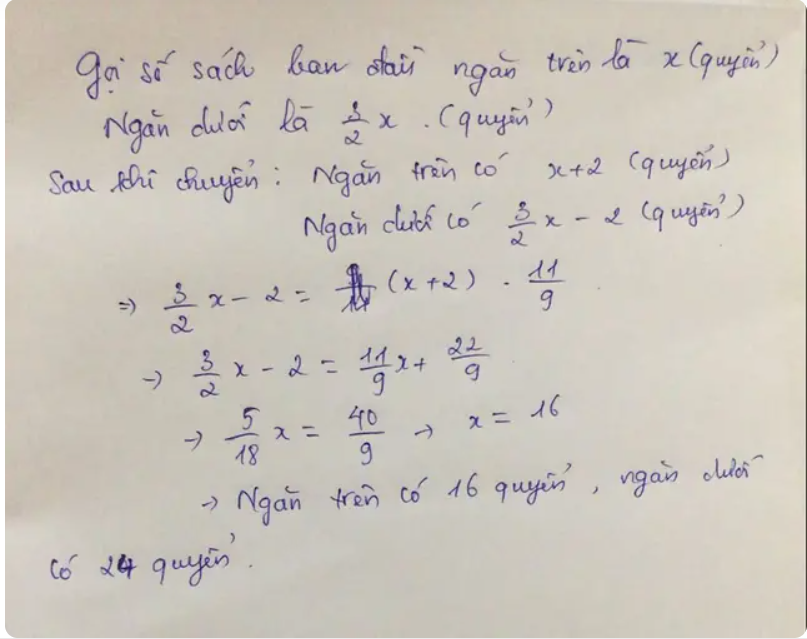 Gọi số sách ban đầu ngăn trên là x (quyển)
Ngăn dưới là 3/2 x . (quyển)
Sau khi chuyển : Ngăn trên có x+2 (quyển)
Ngăn dưới có 3/2 x - 2 (quyển)
=> 3/2 x - 2 = (x+2) . 11/9
-> 3/2 x - 2 = 11/9 x + 22/9
-> 5/18 x = 40/9 -> x = 16
-> Ngăn trên có 16 quyển, ngăn dưới
có 24 quyển.